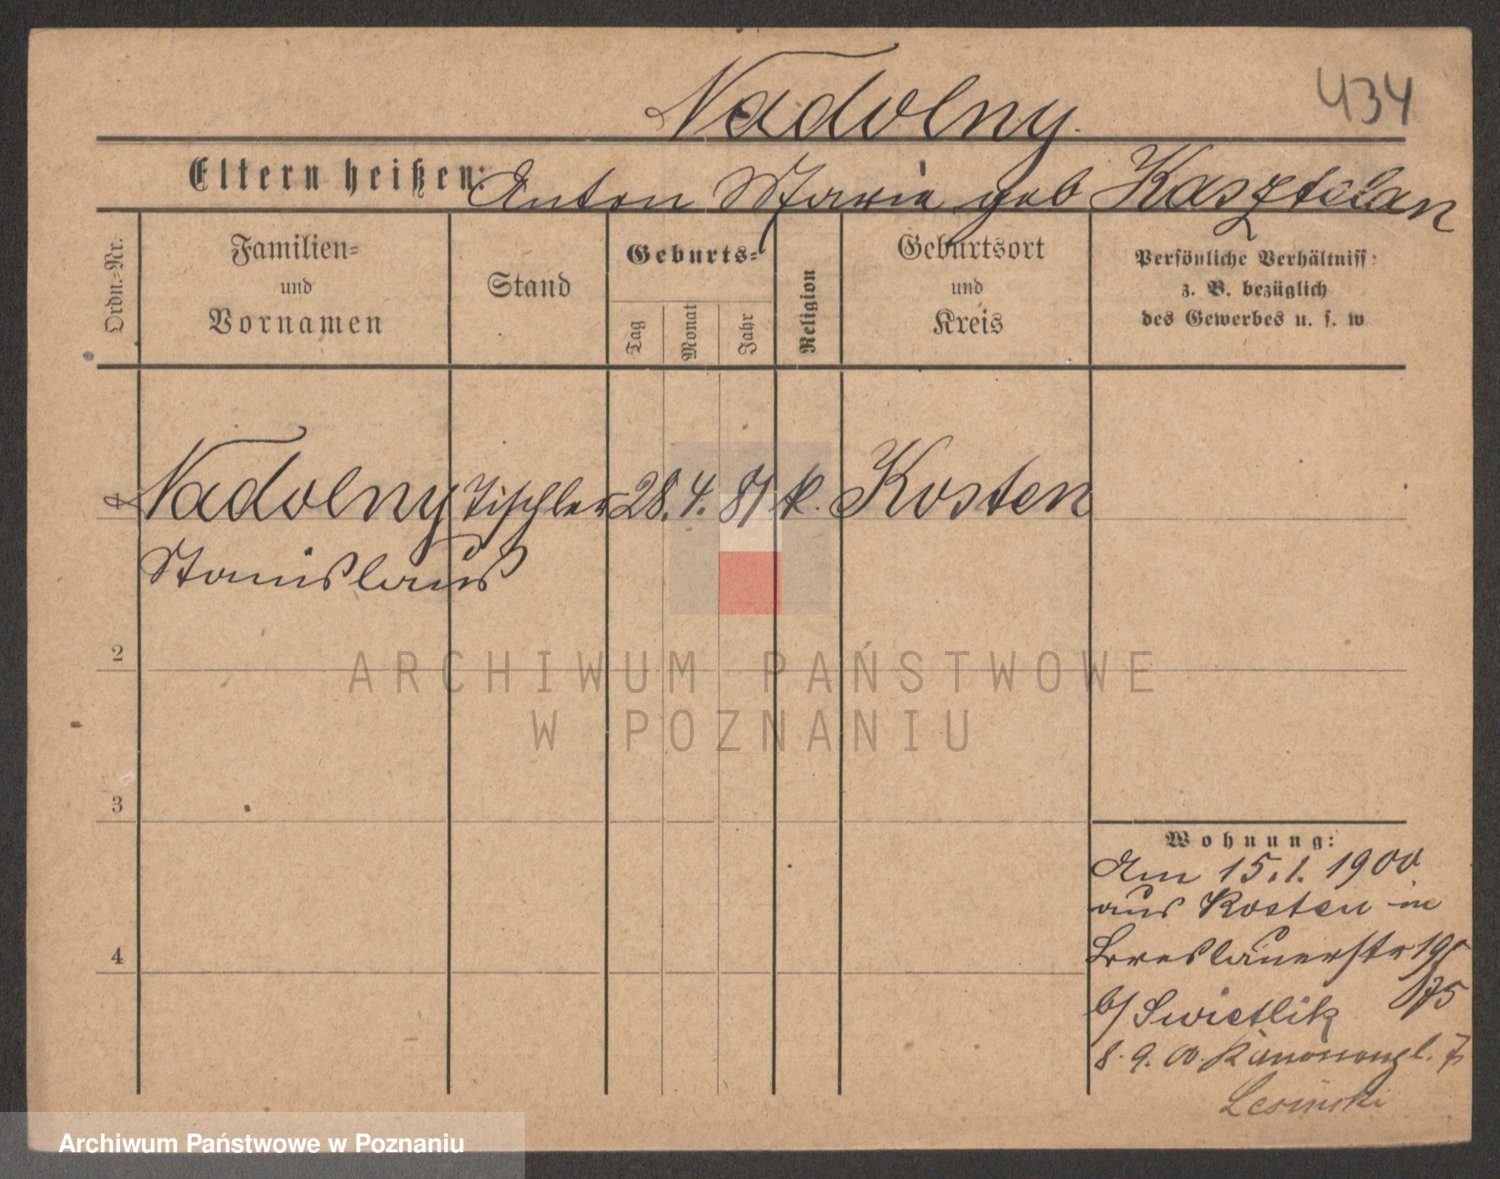 Nadolny.
434
Eltern heißen: Anton Marie geb Kasztelan
Ordn.-Nr.
Familien-
und
Vornamen
Stand
Geburts-
Tag
Monat
Jahr
Religion
Geburtsort
und
Kreis
Persönliche Verhältniss:
z. B. bezüglich
des Gewerbes u. s. w.
1 Nadolny Tischler 28. 4. 81 k. Kosten
Stanislaus
2
ARCHIWUM PAŃSTWOWE
W POZNANIU
3
4
Wohnung:
Am 15.1. 1900
aus Kosten in
Breslauerstr 19
b/ Swietlik
8. 9. 00.
Lesinski
Archiwum Państwowe w Poznaniu